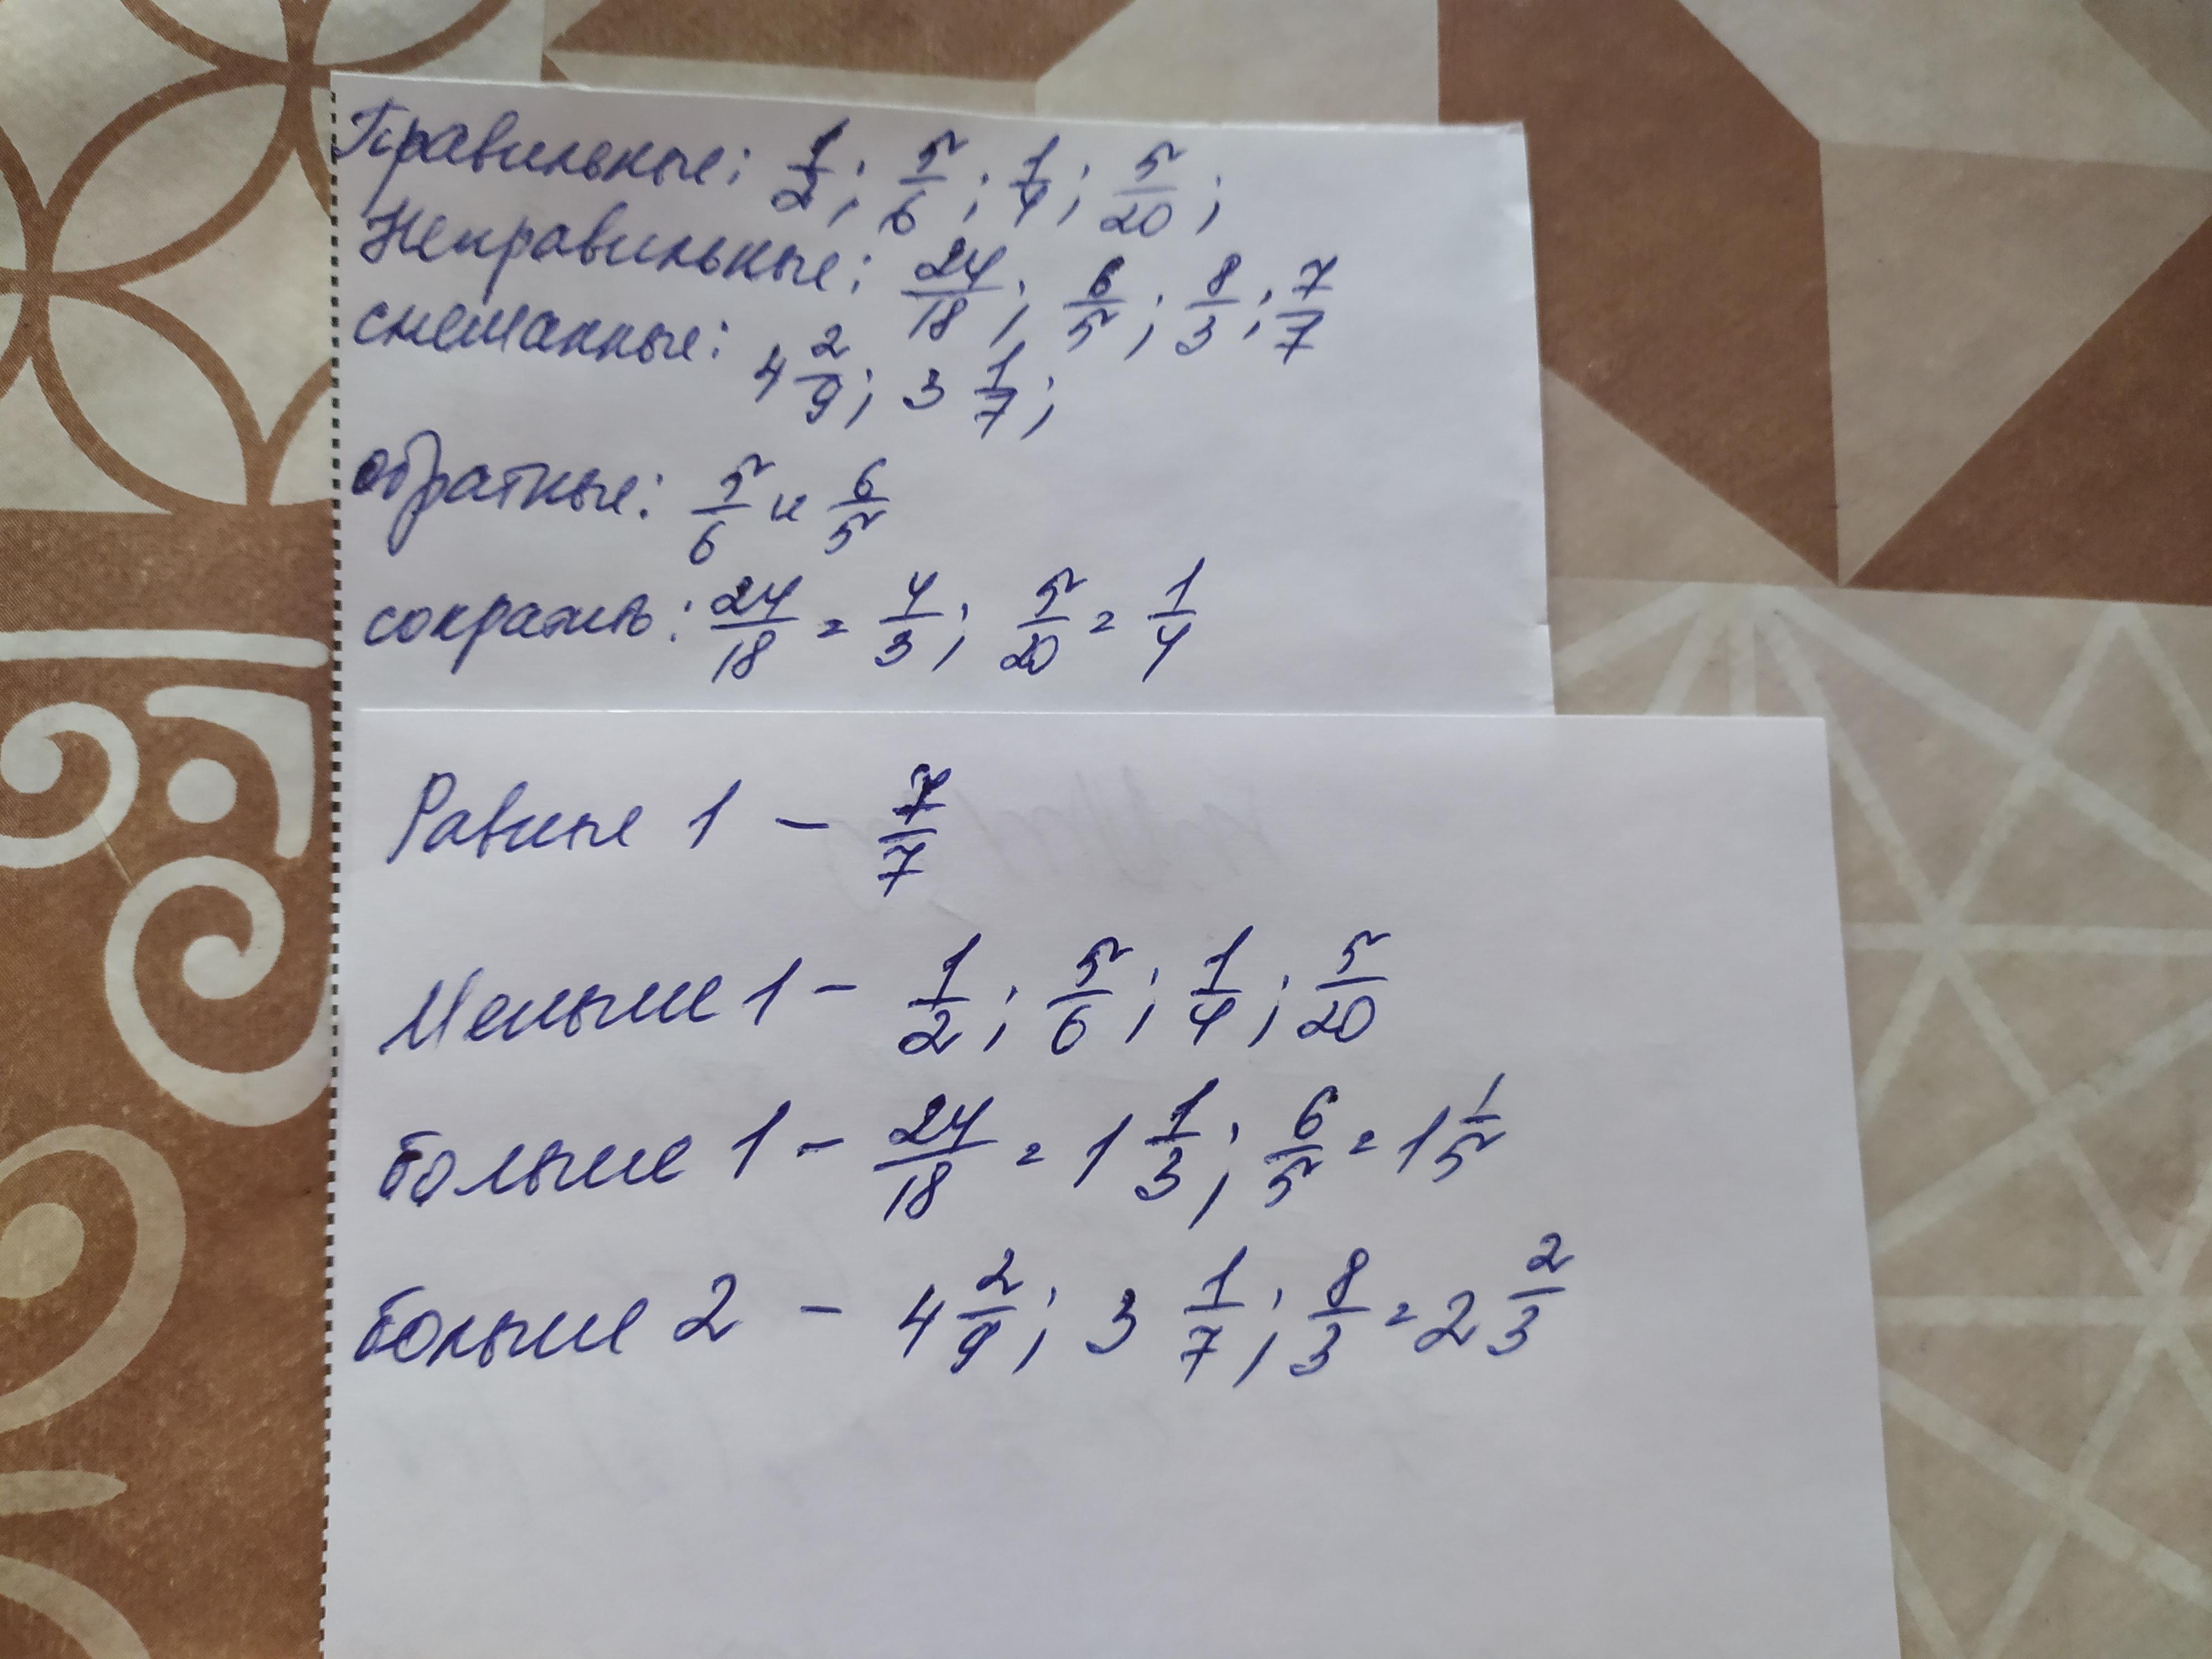 Правильные: 1/2; 5/6; 1/4; 5/20;
Неправильные: 24/18; 6/5; 8/3; 7/7
смешанные: 4 2/9; 3 1/7;
обратные: 5/6 и 6/5
сократить: 24/18 = 4/3; 5/20 = 1/4
Равные 1 - 7/7
Меньше 1 - 1/2; 5/6; 1/4; 5/20
больше 1 - 24/18 = 1 1/3; 6/5 = 1 1/5
больше 2 - 4 2/9; 3 1/7; 8/3 = 2 2/3